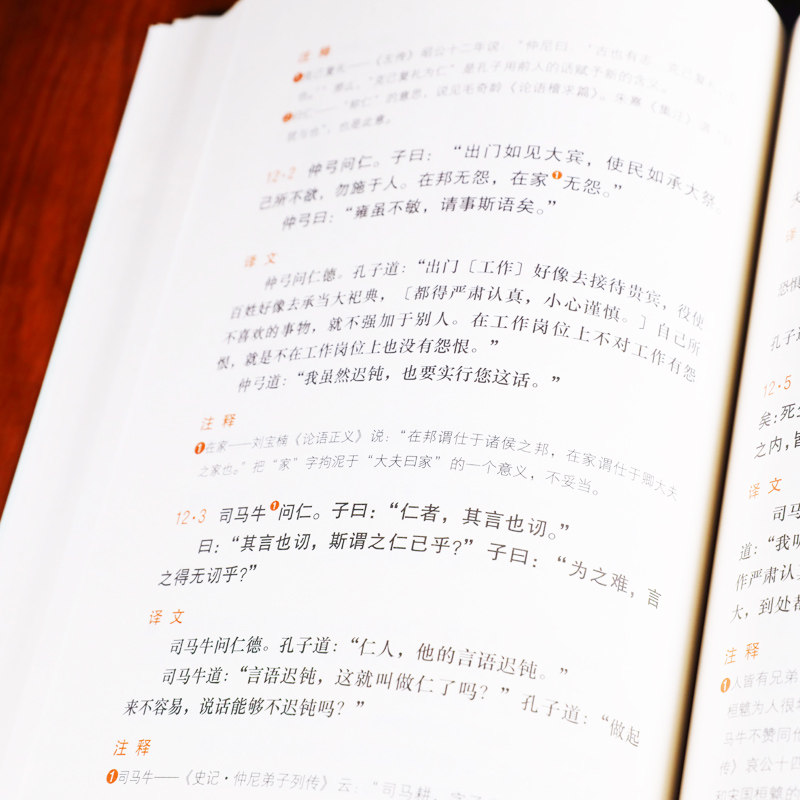 注 释
❶克己复礼——《左传》昭公十二年说，“仲尼曰：‘古也有志，克己复
也。’”那么，“克己复礼为仁”是孔子用前人的话赋予新的含义。
的意思，说见毛奇龄《论语稽求篇》。朱熹《集注》谓
也，也是此意。
12·2 仲弓问仁。子曰：“出门如见大宾，使民如承大祭。
己所不欲，勿施于人。在邦无怨，在家❶无怨。”
仲弓曰：“雍虽不敏，请事斯语矣。”
译 文
仲弓问仁德。孔子道：“出门〔工作〕好像去接待贵宾，役使
百姓好像去承当大祀典，〔都得严肃认真，小心谨慎。〕自己所
不喜欢的事物，就不强加于别人。在工作岗位上不对工作有怨
恨，就是不在工作岗位上也没有怨恨。”
仲弓道：“我虽然迟钝，也要实行您这话。”
注 释
❶在家——刘宝楠《论语正义》说：“在邦谓仕于诸侯之邦，在家谓仕于卿大夫
之家也。”把“家”字拘泥于“大夫曰家”的一个意义，不妥当。
12·3 司马牛❶问仁。子曰：“仁者，其言也讱。”
曰：“其言也讱，斯谓之仁已乎？”子曰：“为之难，言
之得无讱乎？”
译 文
司马牛问仁德。孔子道：“仁人，他的言语迟钝。”
司马牛道：“言语迟钝，这就叫做仁了吗？”孔子道：“做起
来不容易，说话能够不迟钝吗？”
注 释
❶司马牛——《史记·仲尼弟子列传》云：“司马耕，字子
恐惧
孔子道
12·5
矣：死
之内，皆
译 文
司马
道：“我
作严肃认真
大，到处都
注 释
❶人皆有兄弟
桓魋为人很
马牛不赞同他
传》哀公十四
和宋国桓魋的